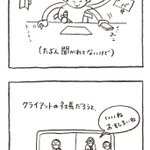 (たぶん聞かれてないけど)
クライアントの社長だろうと、
いいね
おもしろいね